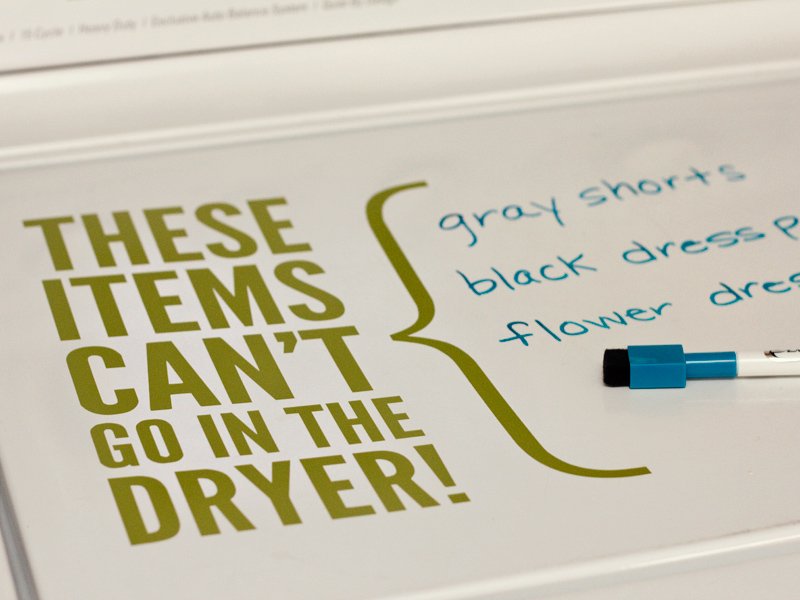 / 10 Cycle / Heavy Duty / Exclusive Auto Balance System /
THESE
ITEMS
CAN'T
GO IN THE
DRYER!
gray shorts
black dress
flower